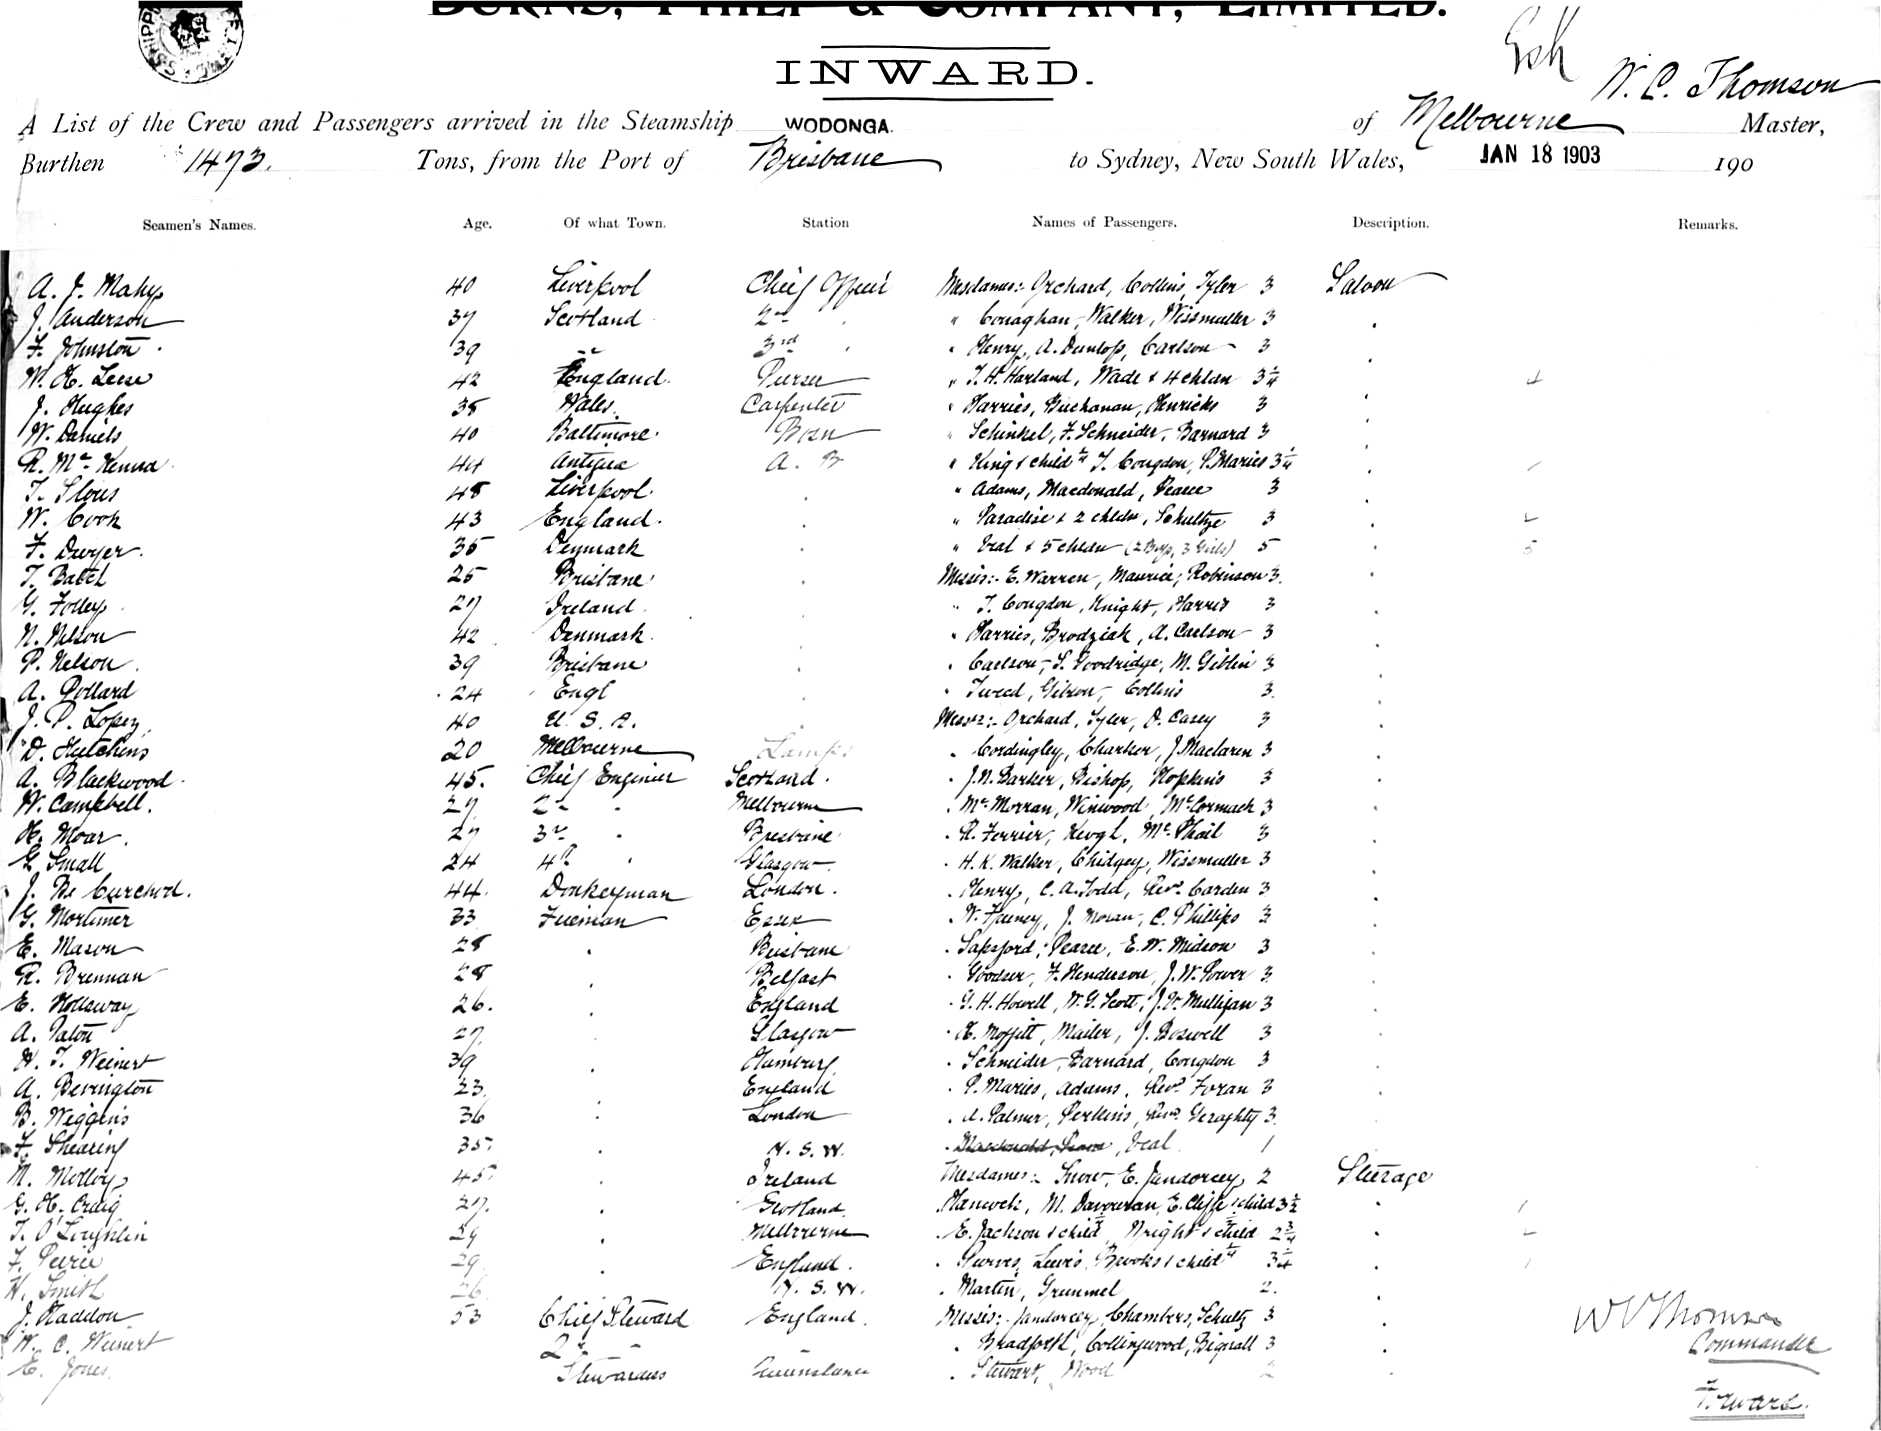 BURNS, PHILP & COMPANY, LIMITED.
INWARD.
W. C. Thomson
A List of the Crew and Passengers arrived in the Steamship WODONGA. of Melbourne Master,
Burthen 1473. Tons, from the Port of Brisbane to Sydney, New South Wales, JAN 18 1903 190
Seamen's Names. Age. Of what Town. Station Names of Passengers. Description. Remarks.
A. J. Mahy 40 Liverpool Chief Officer Mesdames:- Orchard, Collins, Tyler 3 Saloon
J. Anderson 37 Scotland 2nd " Conaghan, Walker, Wissmuller 3
F. Johnston 39 " 3rd " Henry, A. Dunlop, Carlson 3
W. H. Leese 42 England Purser " T. H. Harland, Wade & 4 chldn 3 1/4 4
J. Hughes 38 Wales Carpenter " Harries, Buchanan, Henricks 3
W. Daniels 40 Baltimore Bosn " Schinkel, F. Schneider, Barnard 3
R. McKenna 44 Antigua A. B " King & child 1/4 T. Congdon, P. Maries 3 1/4
T. Slous 48 Liverpool " Adams, Macdonald, Pearce 3
W. Cook 43 England. " Paradise & 2 chldn, Schultze 3 2
F. Dwyer. 35 Denmark " Veal & 5 chldn (2 Boys, 3 Girls) 5 5
T. Batch 25 Brisbane Misses:- E. Warren, Maurice, Robinson 3
G. Folley 27 Ireland " T. Congdon, Knight, Harris 3
N. Nelson 42 Denmark " Harries, Brodziak, A. Carlson 3
P. Nelson 39 Brisbane " Carlson, S. Goodridge, M. Giblin 3
A. Pollard 24 Engl " Tweed, Gibson, Collins 3
J. P. Lopez 40 U. S. A. Messrs:- Orchard, Tyler, O. Casey 3
D. Hutchins 20 Melbourne Lamps " Cordingley, Charker, J. Maclaren 3
A. Blackwood 45. Chief Engineer Scotland. " J. N. Barker, Bishop, Hopkins 3
W. Campbell. 27 2nd " Melbourne " McMorran, Winwood, McCormack 3
H. Moar. 27 3rd " Brisbane " R. Ferrier, Keogh, McPhail 3
G. Small 24 4th " Glasgow " H. K. Walker, Chidgey, Wissmuller 3
J. De Curchod. 44. Donkeyman London. " Henry, C. A. Todd, Revd. Carden 3
G. Mortimer 33 Fireman Essex " W. Feeney, J. Moran, C. Phillips 3
E. Mason 28 " Brisbane " Sapsford, Pearce, E. W. Midson 3
R. Brennan 28 " Belfast " Goodeer, F. Henderson, J. W. Power 3
E. Holloway 26. " England " G. H. Howell, W. G. Scott, J. V. Mulligan 3
A. Paton 27 Glasgow " H. Moffitt, Mailer, J. Boswell 3
H. T. Weinert 39 " Hamburg " Schneider, Barnard, Congdon 3
A. Bevington 23 England " P. Maries, Adams, Revd. Foran 3
B. Wiggins 36 " London " A. Palmer, Perkins, Revd. Geraghty 3
F. Shearing 35 " N. S. W. " Macdonald, Pearce, Veal 1
M. Molloy 45 " Ireland Mesdames:- Snow, E. Jandorcey 2 Steerage
G. H. Craig 27. " Scotland. " Hancock, M. Davouran, E. Cliffe & child 3 1/2 1
T. O'Loughlin 29 " Melbourne " E. Jackson & child 1/2, Wright & child 2 3/4 2
F. Peirce 29 " England. " Purves, Lewis, Brooks & child 1/4 3 1/4 1
H. Smith 26 N. S. W. " Martin, Grummel 2.
J. Haddon 53 Chief Steward England. Misses:- Jandorcey, Chambers, Schultz 3
W. C. Weinert 2nd " " Bradforth, Collingwood, Bignall 3
E. Jones. Stewardess Queensland " Stewart, Wood 2
W C Thomson
Commander
Forward.